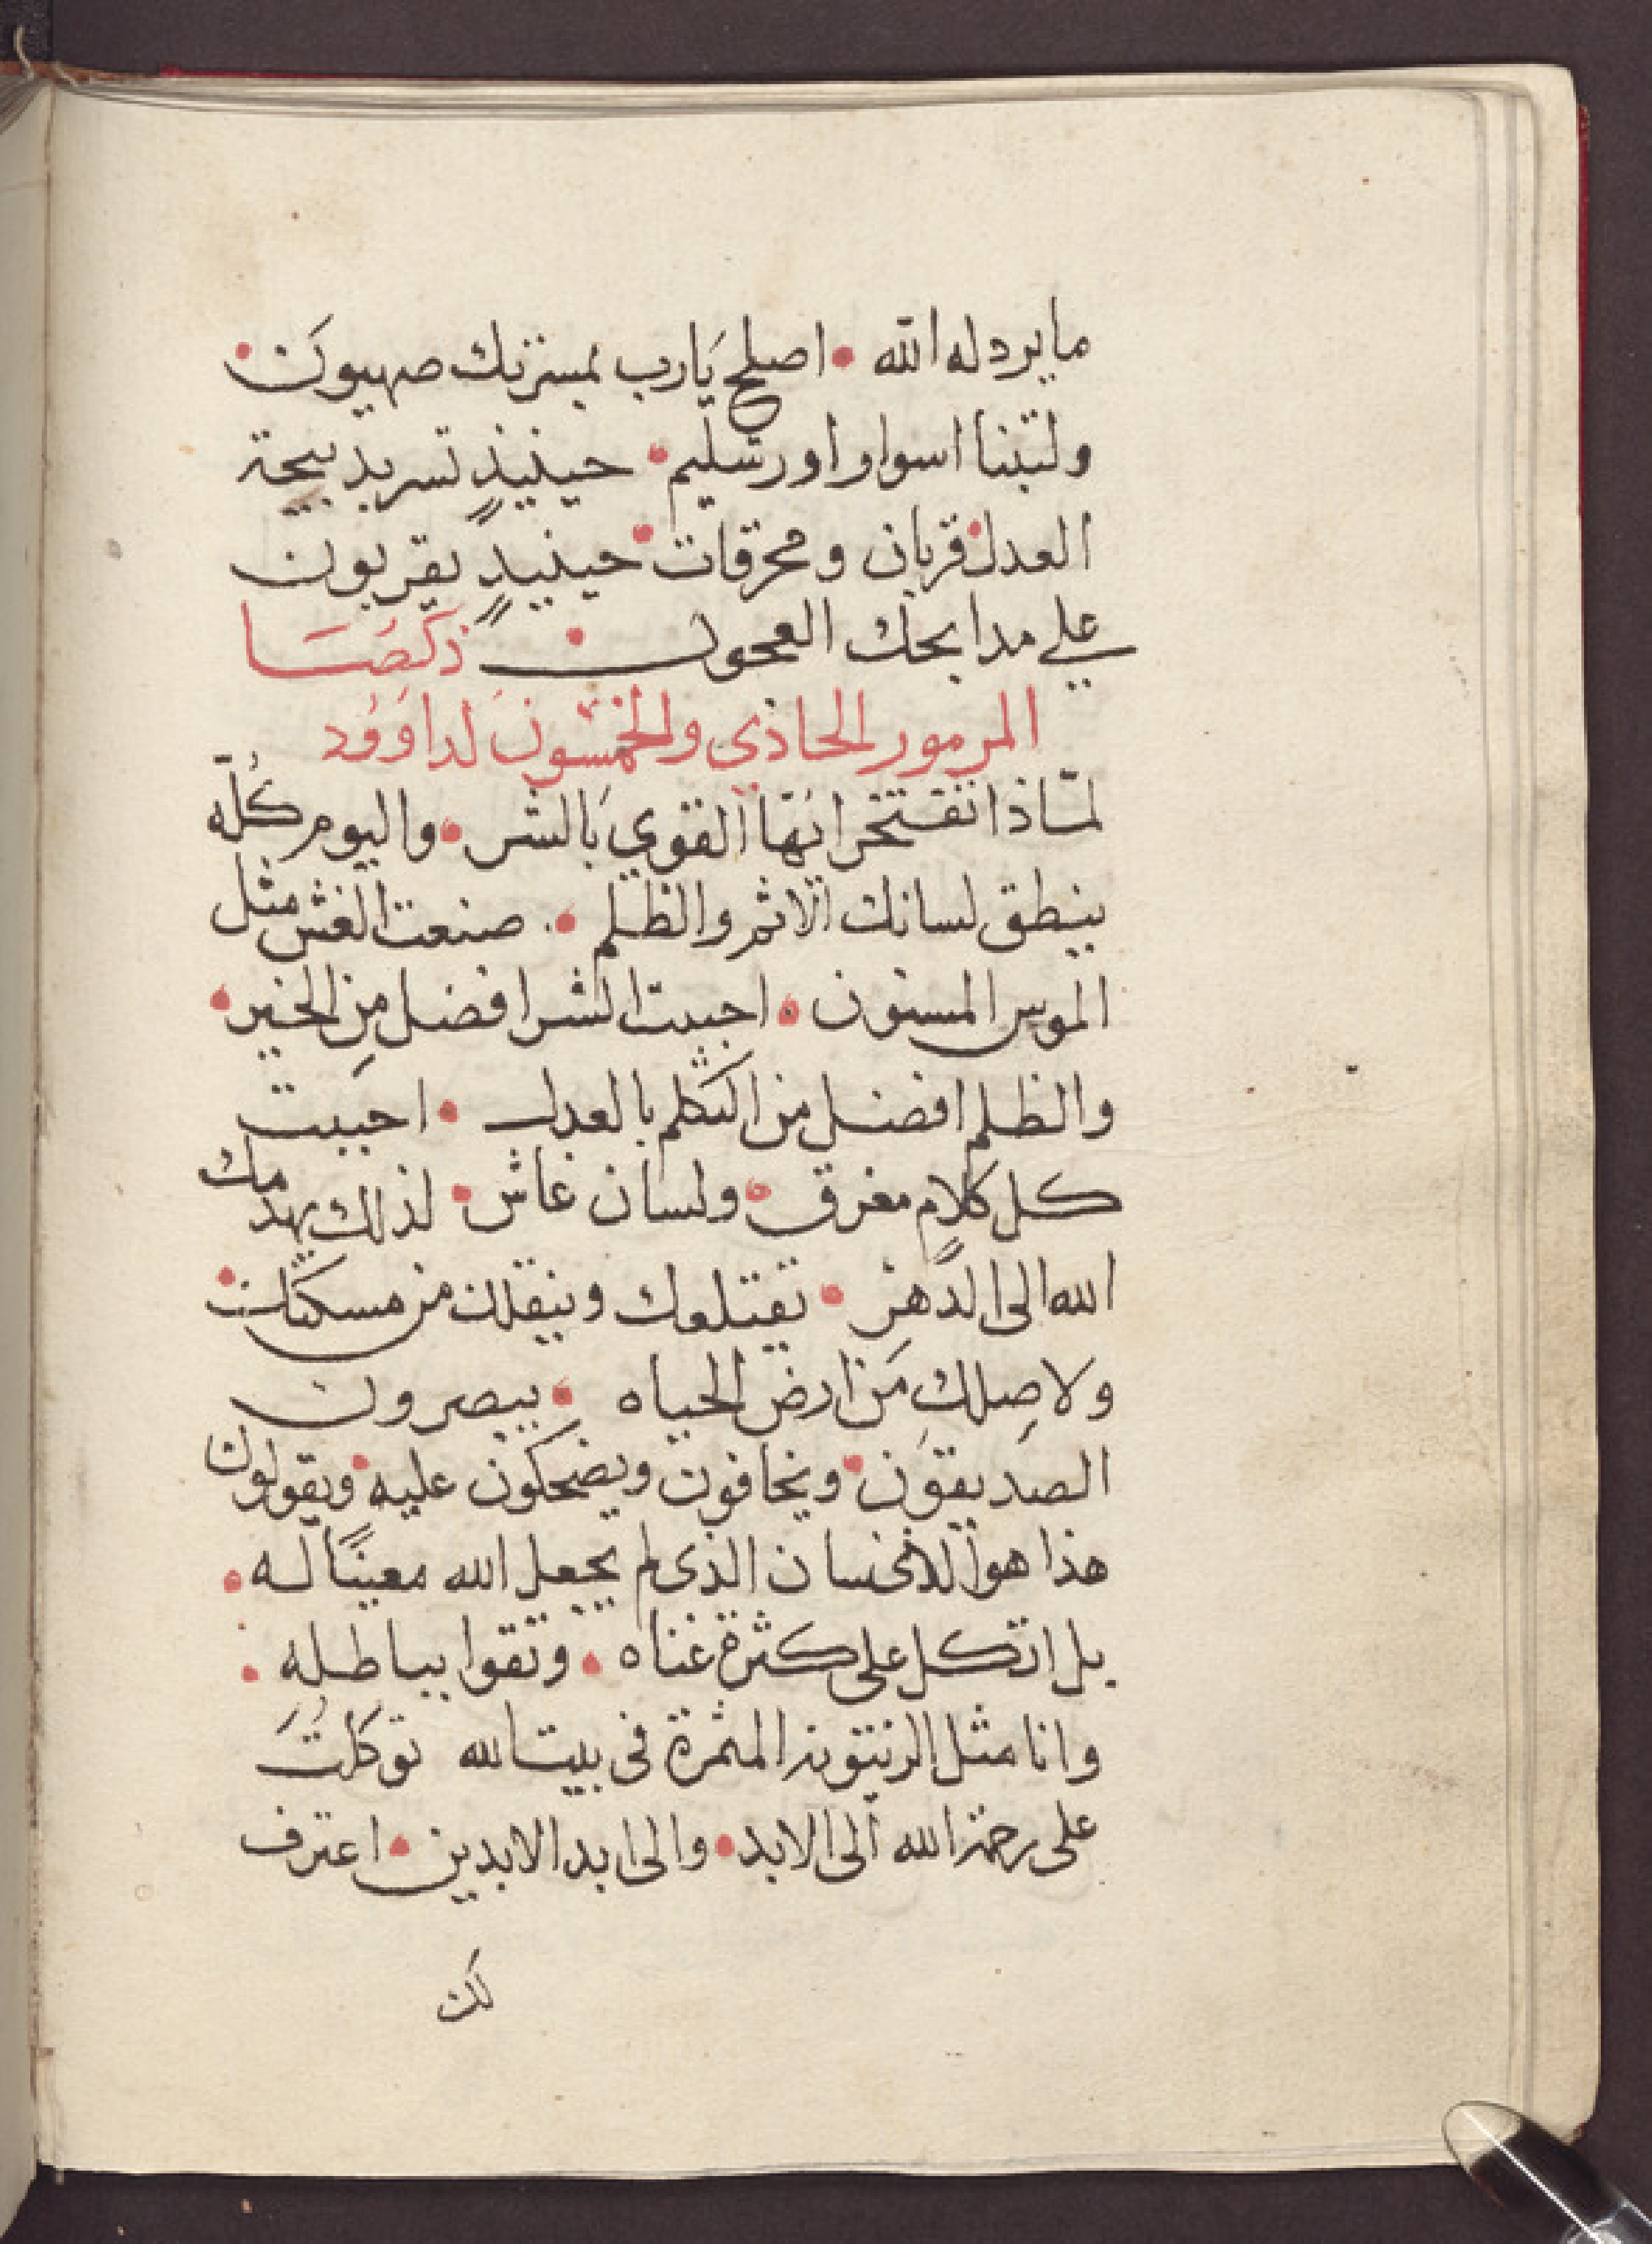 ما يرد له الله • اصلح يارب بمسرتك صهيون •
ولتبنا اسوار اورشليم • حينيذٍ تسر بدبيحة
العدل • قربان ومحرقات • حينيدٍ يقربون
علي مدابحك العجول • ذكصا
المزمور الحاذي والخمسون لداوود
لمّاذا تفتخر ايها القوي بالشر • واليوم كُلّه
ينطق لسانك الاثم والظلم • صنعت الغش مثل
الموس المسنون • احببت الشر افضل مِن الخير •
والظلم افضل من التكلم بالعدل • احببت
كل كلامٍ مغرق • ولسان غاش • لذلك يهدمك
الله الى الدهر • يقتلعك وينقلك من مسكنك •
ولاصلك من ارض الحياه • يبصرون
الصديقون • ويخافون ويضحكون عليه • ويقولون
هذا هو الانسان الذى لم يجعل الله معينًا له •
بل اتكل على كثرة غناه • وتقوا بباطله •
وانا مثل الزيتونه المثمرة فى بيت الله توكلتُ
على رحمة الله الى الابد • والى ابد الابدين • اعترف
لك